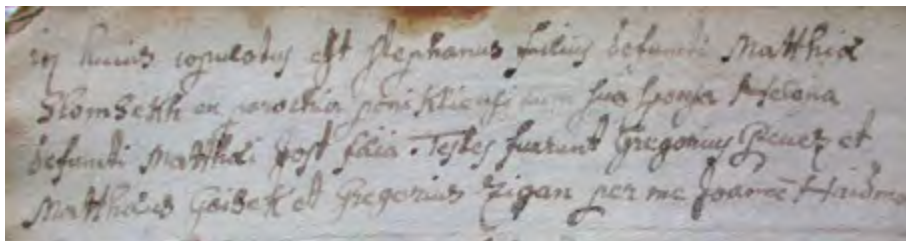 huius copulatus est Stephanus filius defuncti Matthiæ
Slomsekh ex parochia ponikliensi cum sua sponsa Helena
defuncti Matthæi post filia. Testes fuerunt Gregorius et
Matthæus Goisek et Gregorius Zigan per me Joanē